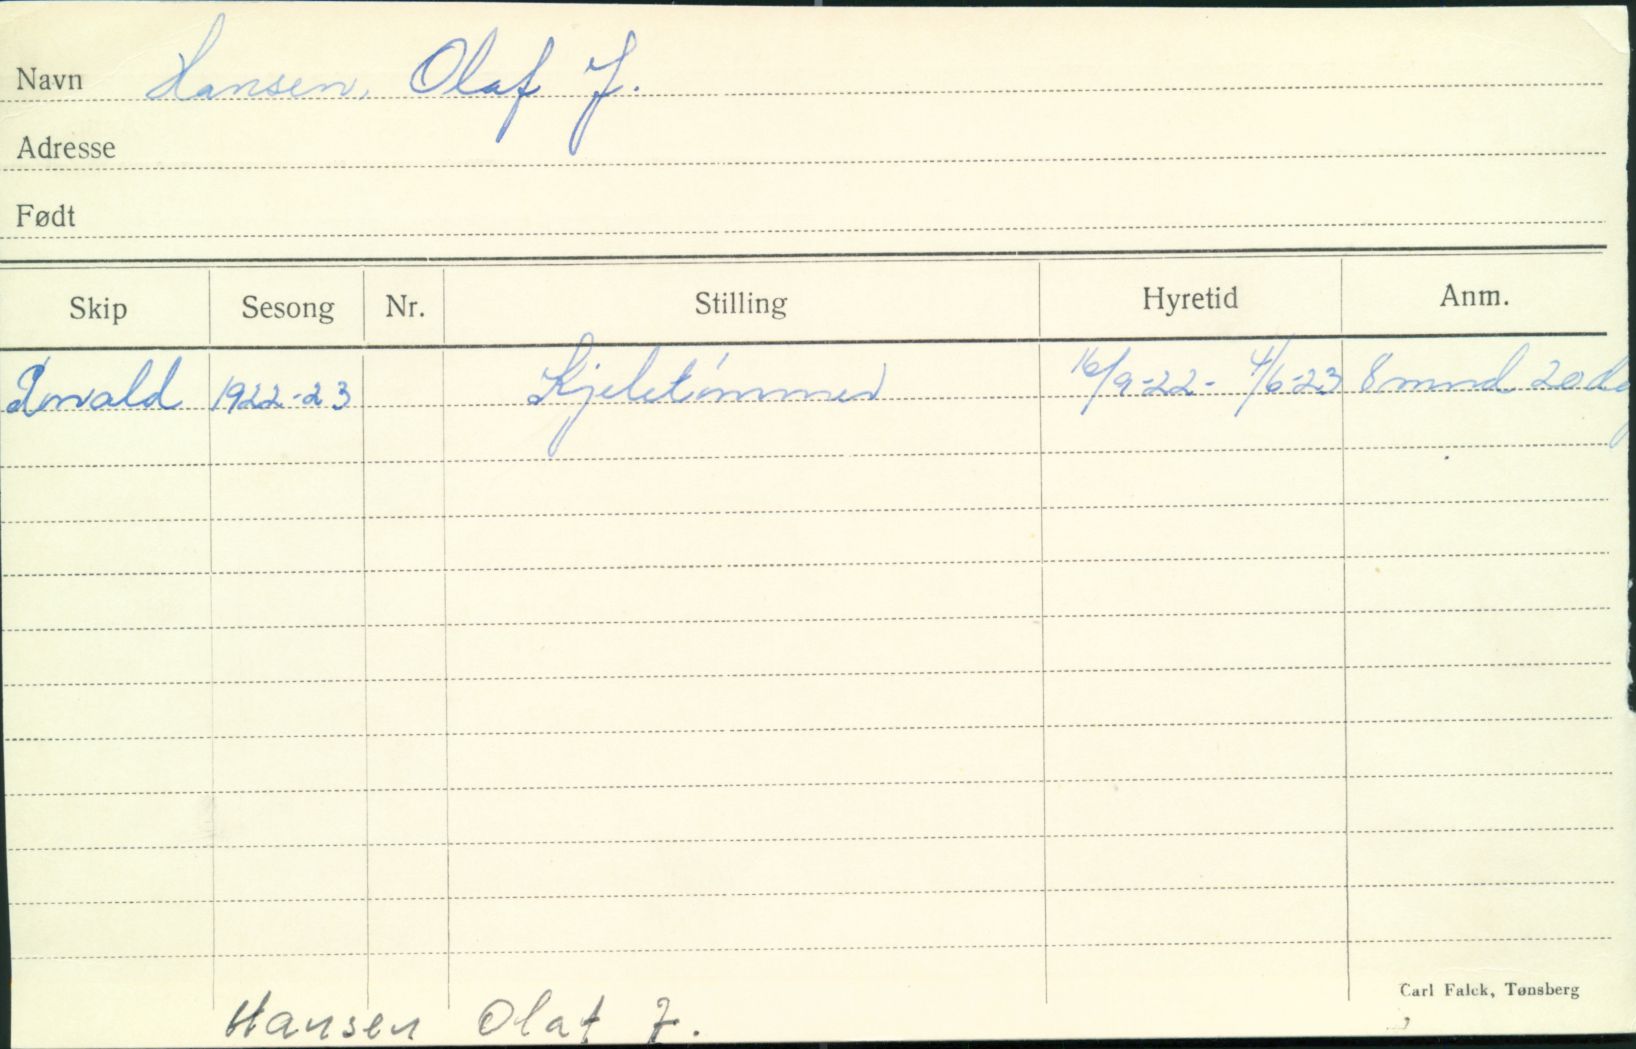 Navn Hansen, Olaf J.
Adresse
Født
Skip Sesong Nr. Stilling Hyretid Anm.
1922-23 Kjeletømmer 16/9-22- 4/6-23 8 mnd 20 dg
Carl Falck, Tønsberg
Hansen Olaf J.